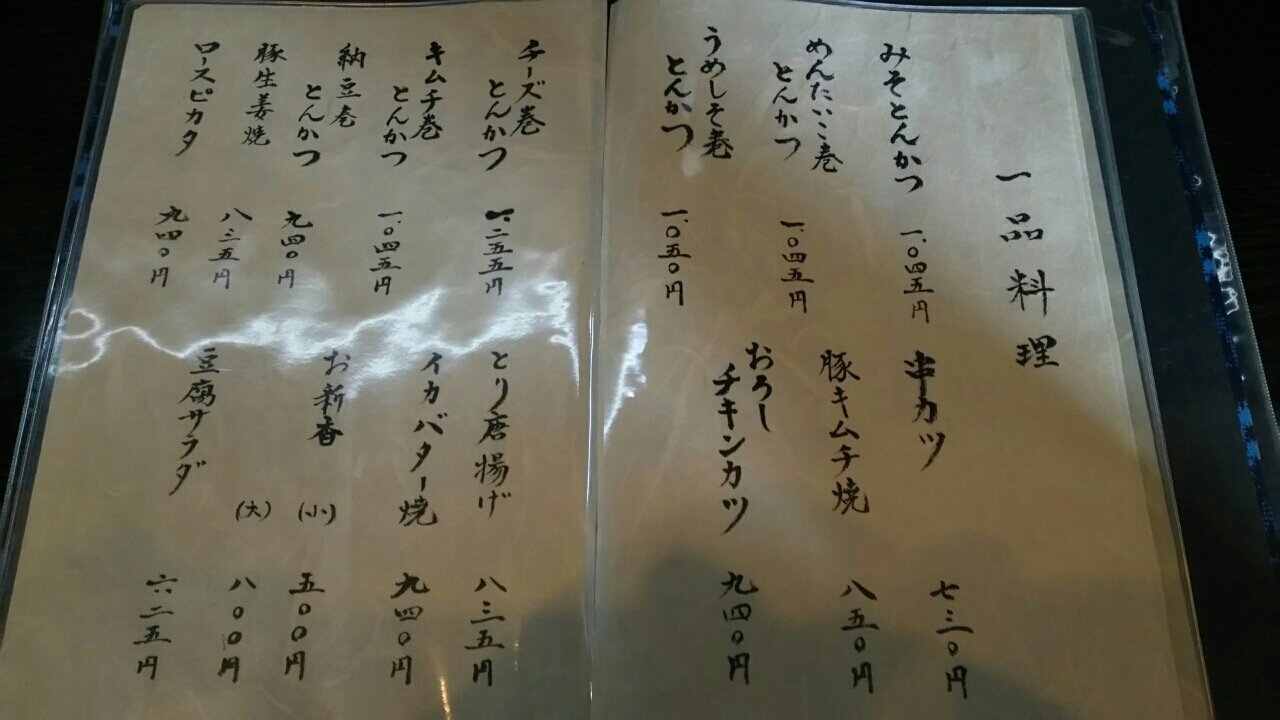 一品料理
みそとんかつ
一、〇四五円
めんたいこ巻
とんかつ
一、〇四五円
うめしそ巻
とんかつ
一、〇五〇円
串カツ
七三〇円
豚キムチ焼
八五〇円
おろし
チキンカツ
九四〇円
チーズ巻
とんかつ
一、二五五円
キムチ巻
とんかつ
一、〇四五円
納豆巻
とんかつ
九四〇円
豚生姜焼
八三五円
ロースピカタ
九四〇円
とり唐揚げ
八三五円
イカバター焼
九四〇円
お新香
(小)
五〇〇円
(大)
八〇〇円
豆腐サラダ
六二五円